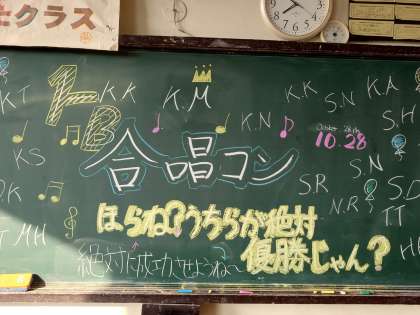 士クラス
1B
K.K
K.M
K.K
K.A
KT
K.N
S.N
S.H
October 28th
10.28
合唱コン
KS
S.N
D.K
S.R
S.D
N.R
TT
MH
ほらね?うちらが絶対
優勝じゃん?
絶対に成功させようね〜